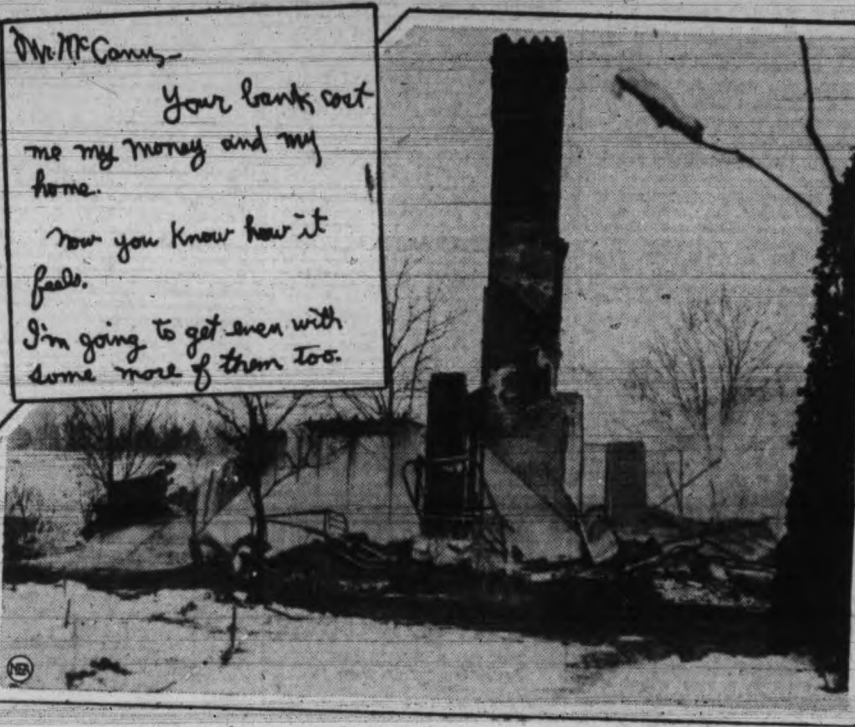 Mr. McCanny—
Your bank cost
me my money and my
home.
Now you know how it
feels.
I'm going to get even with
some more of them too.
NEA